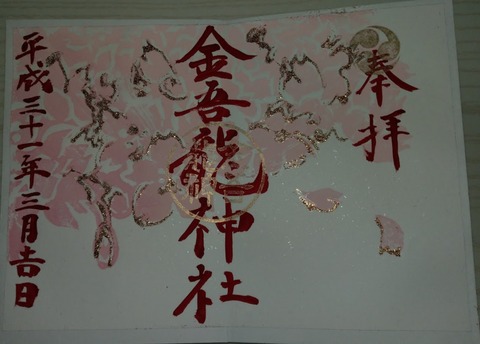 奉拝
金吾龍神社
平成三十一年三月吉日